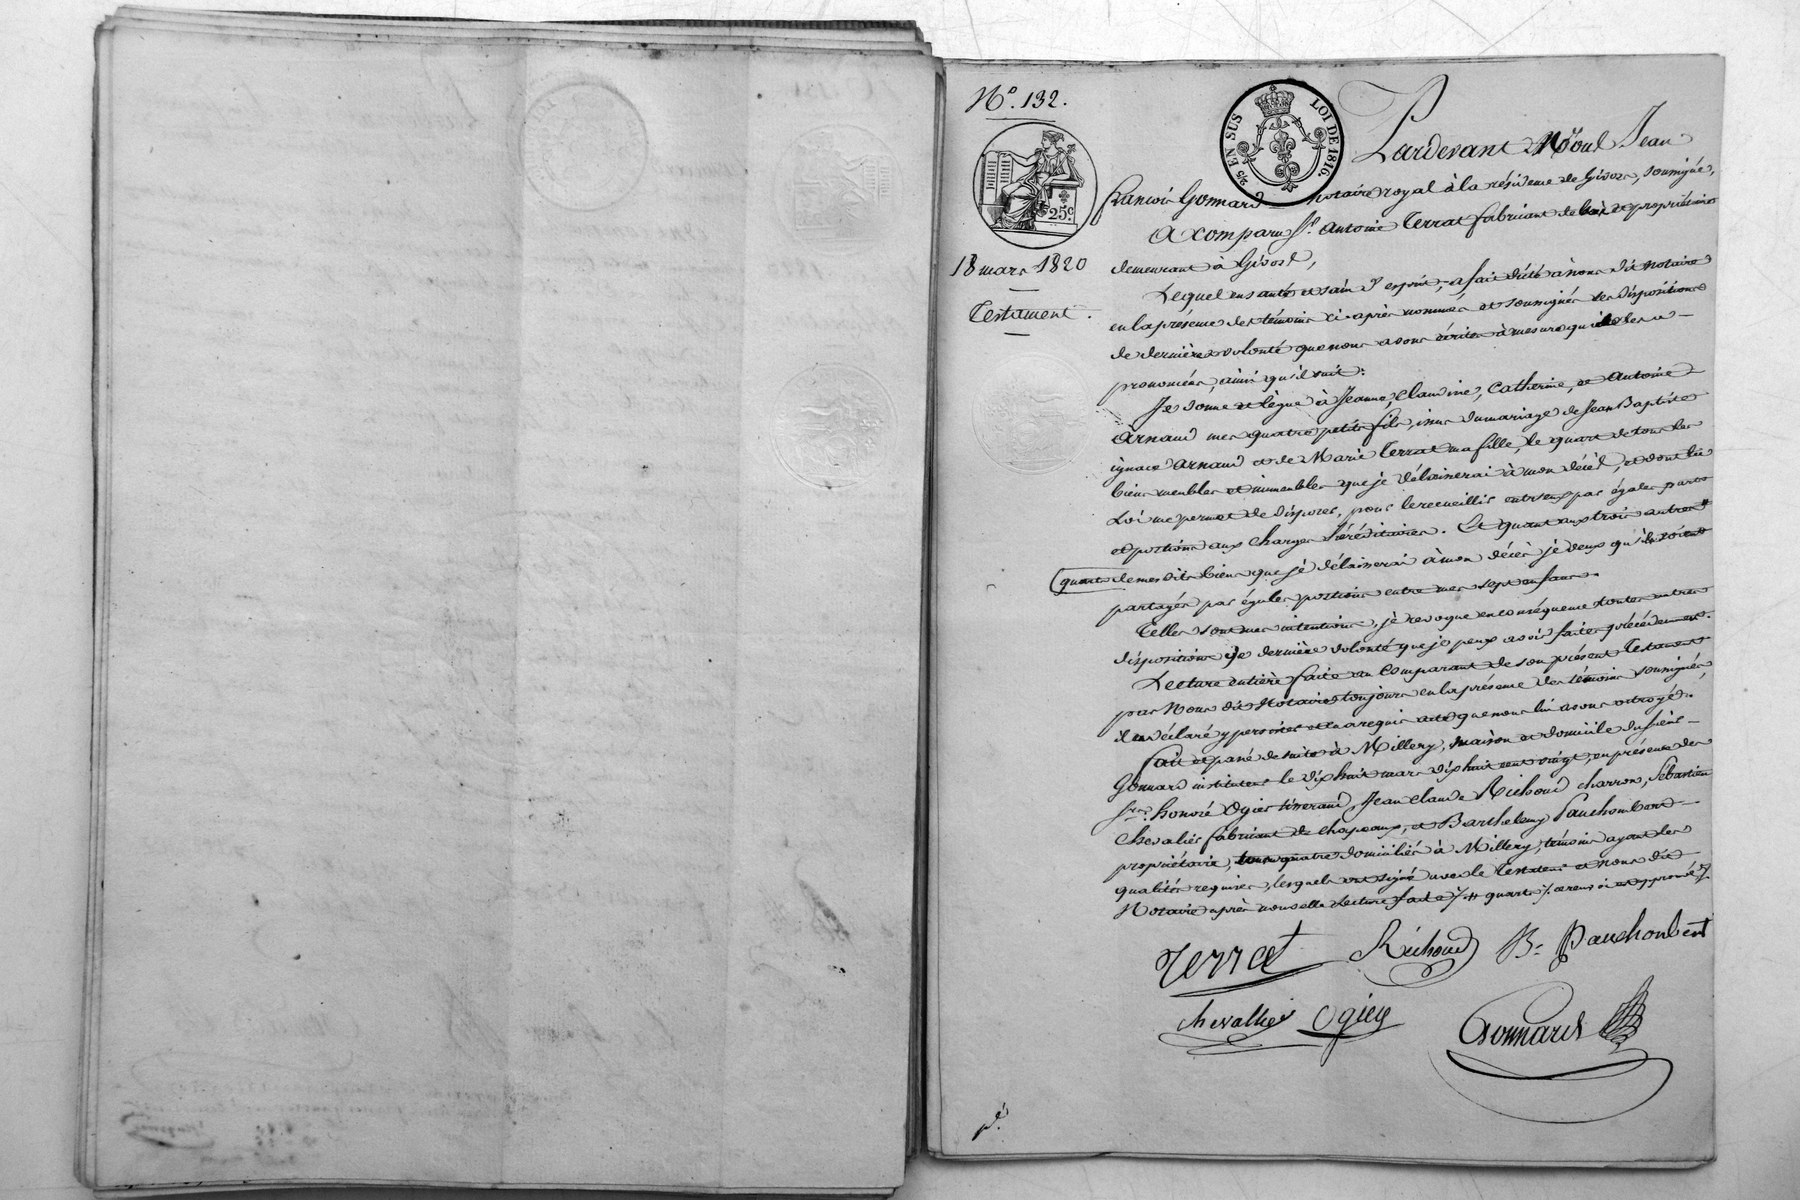 N.° 132.
2/5 EN SUS LOI DE 1816.
25.c
18 mars 1820
Testament.
Pardevant Nous Jean
francois Gonnard notaire royal à la résidence de Givors, soussigné,
a comparu S.r antoine Terrat fabricant de et propriétaire
demeurant à Givors,
Lequel en santé et sain d'esprit, a fait dicté à nous dit notaire
en la présence des témoins ci-après nommés et soussignés ses dispositions
de dernière volonté que nous avons écrites à mesure qu'il les a
prononcées, ainsi qu'il suit:
Je donne et lègue à Jeanne, Claudine, Catherine, et Antoine
Arnaud mes quatre petits fils, issus du mariage de Jean Baptiste
ignace Arnaud et de Marie Terrat ma fille, le quart de tous les
biens meubles et immeubles que je délaisserai à mon décès, et dont la
Loi me permet de disposer, pour le recueillir entr'eux par égales parts
et portions aux charges héréditaires. Et quant aux trois autres #
quart de mes dits biens que je délaisserai à mon décès je veux qu'ils soient
partagés par égales portions entre mes sept enfans.
Telles sont mes intentions, je revoque en conséquence toutes autres
dispositions de dernière volonté que je peux avoir faites précédement.
Lecture entière faite au Comparant de son présent Testament
par Nous dit Notaire toujours en la présence des témoins soussignés,
il a déclaré y persister et en a requis acte que nous lui avons octroyé.
Fait et passé de suite à Millery, maison et domicile du sieur
Gonnard instituteur le dix huit mars dix huit cent vingt, en présence des
S.rs honoré Ogier tisserand, Jean Claude Richoud charron, Sébastien
Chevalier fabricant de chapeaux, et Barthelemy Pauchombert
propriétaire, tous quatre domiciliés à Millery, témoins ayant les
qualités requises, lesquels ont signé avec le Testateur et nous dit
Notaire après nouvelle Lecture faite /# quarts /. ce renvoi est approuvé /
Terrat Richoud B. Pauchonbert
chevallier Ogier Gonnard